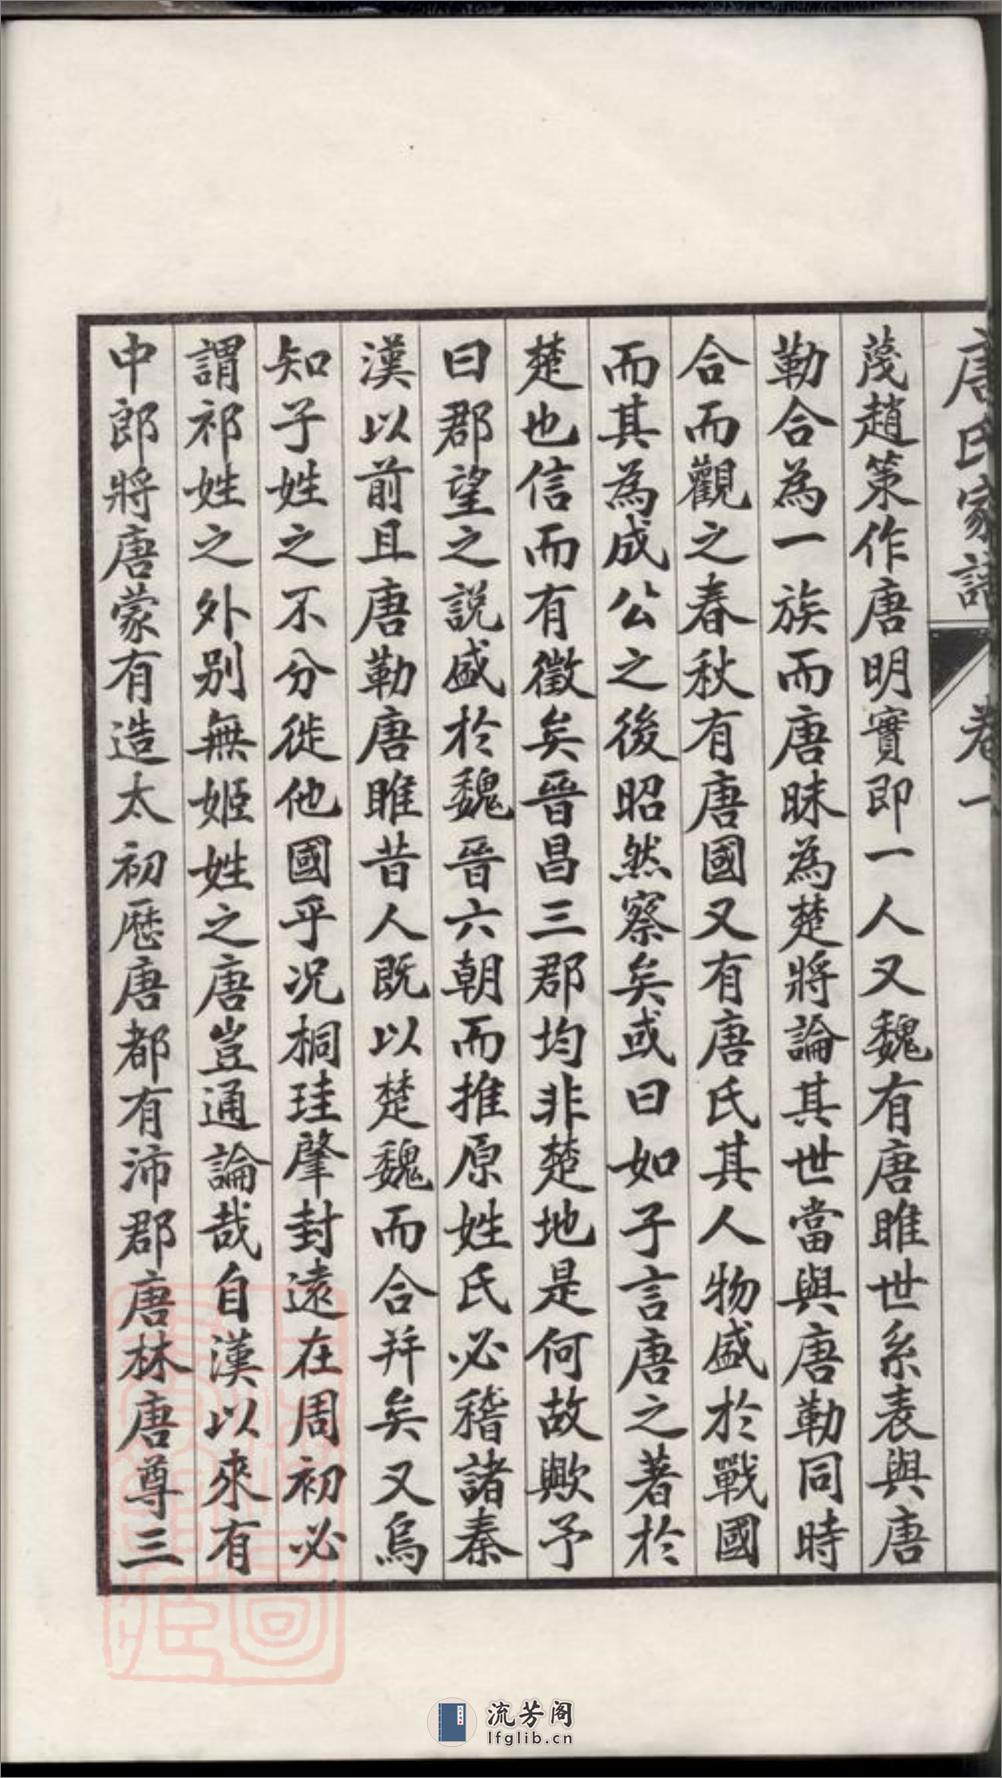 唐氏家譜 卷一
茂趙策作唐明實即一人又魏有唐雎世系表與唐
勒合為一族而唐昧為楚將論其世當與唐勒同時
合而觀之春秋有唐國又有唐氏其人物盛於戰國
而其為成公之後昭然察矣或曰如子言唐之著於
楚也信而有徵矣晉昌三郡均非楚地是何故歟予
曰郡望之說盛於魏晉六朝而推原姓氏必稽諸秦
漢以前且唐勒唐雎昔人既以楚魏而合并矣又烏
知子姓之不分徙他國乎況桐珪肇封遠在周初必
謂祁姓之外別無姬姓之唐豈通論哉自漢以來有
中郎將唐蒙有造太初歷唐都有沛郡唐林唐尊三
流芳阁
lfglib.cn